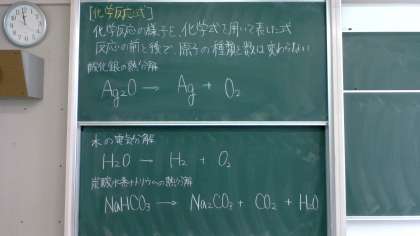 [化学反応式]
化学反応の様子を、化学式を用いて表した式
反応の前と後で、原子の種類と数は変わらない
酸化銀の熱分解
Ag₂O → Ag + O₂
水の電気分解
H₂O → H₂ + O₂
炭酸水素ナトリウムの熱分解
NaHCO₃ → Na₂CO₃ + CO₂ + H₂O